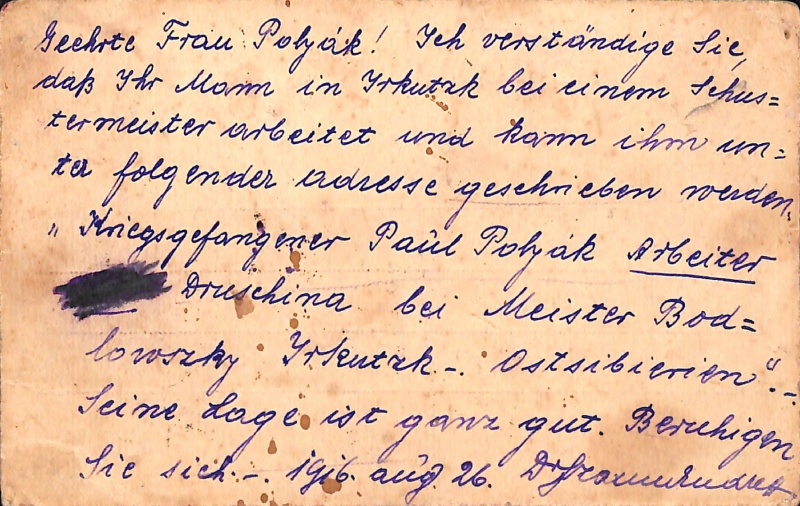 Geehrte Frau Polyák! Ich verständige Sie,
daß Ihr Mann in Irkutzk bei einem Schus=
termeister arbeitet und kann ihm un=
ter folgender adresse geschrieben werden.
"Kriegsgefangener Paul Polyák Arbeiter
Druschina bei Meister Bod=
lowszky Irkutzk -. Ostsibierien".-
Seine Lage ist ganz gut. Beruhigen
Sie sich.-. 1916. aug. 26. Dr